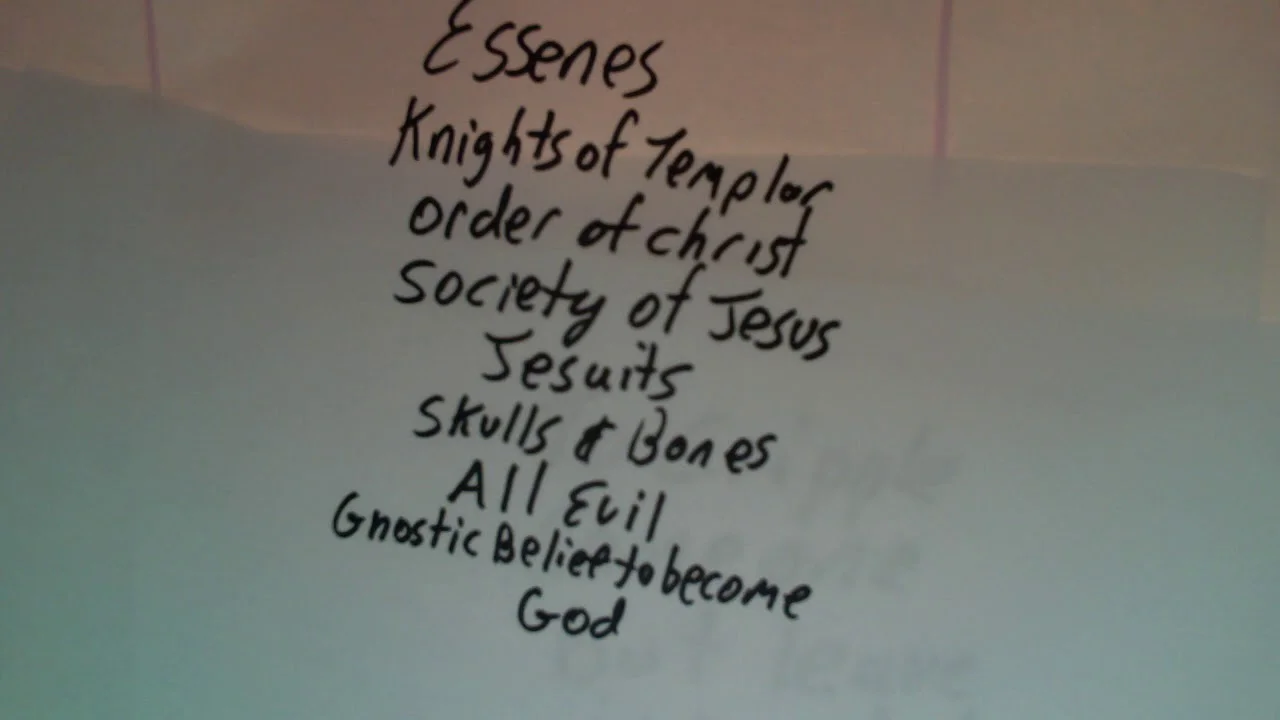 Essenes
Knights of Templar
order of christ
society of Jesus
Jesuits
Skulls & Bones
All Evil
Gnostic Belief to become
God
But leave